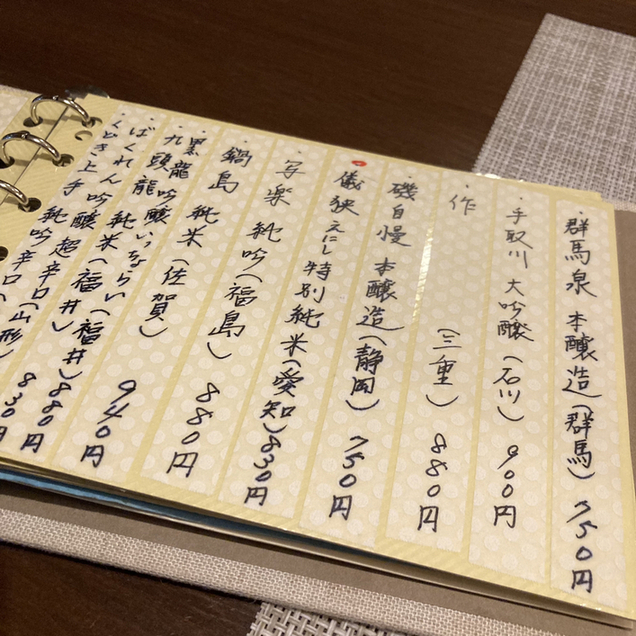 ・群馬泉 本醸造(群馬) 750円
・手取川 大吟醸(石川) 900円
・作 (三重) 880円
・磯自慢 本醸造(静岡) 750円
儀狭 えにし 特別純米(愛知) 830円
・写楽 純吟(福島) 880円
・鍋島 純米(佐賀) 940円
・黒龍 吟醸いっちょらい(福井) 880円
・九頭龍 純米(福井)
・ばくれん 吟醸 超辛口(山形) 830円
・くどき上手 純吟 辛口